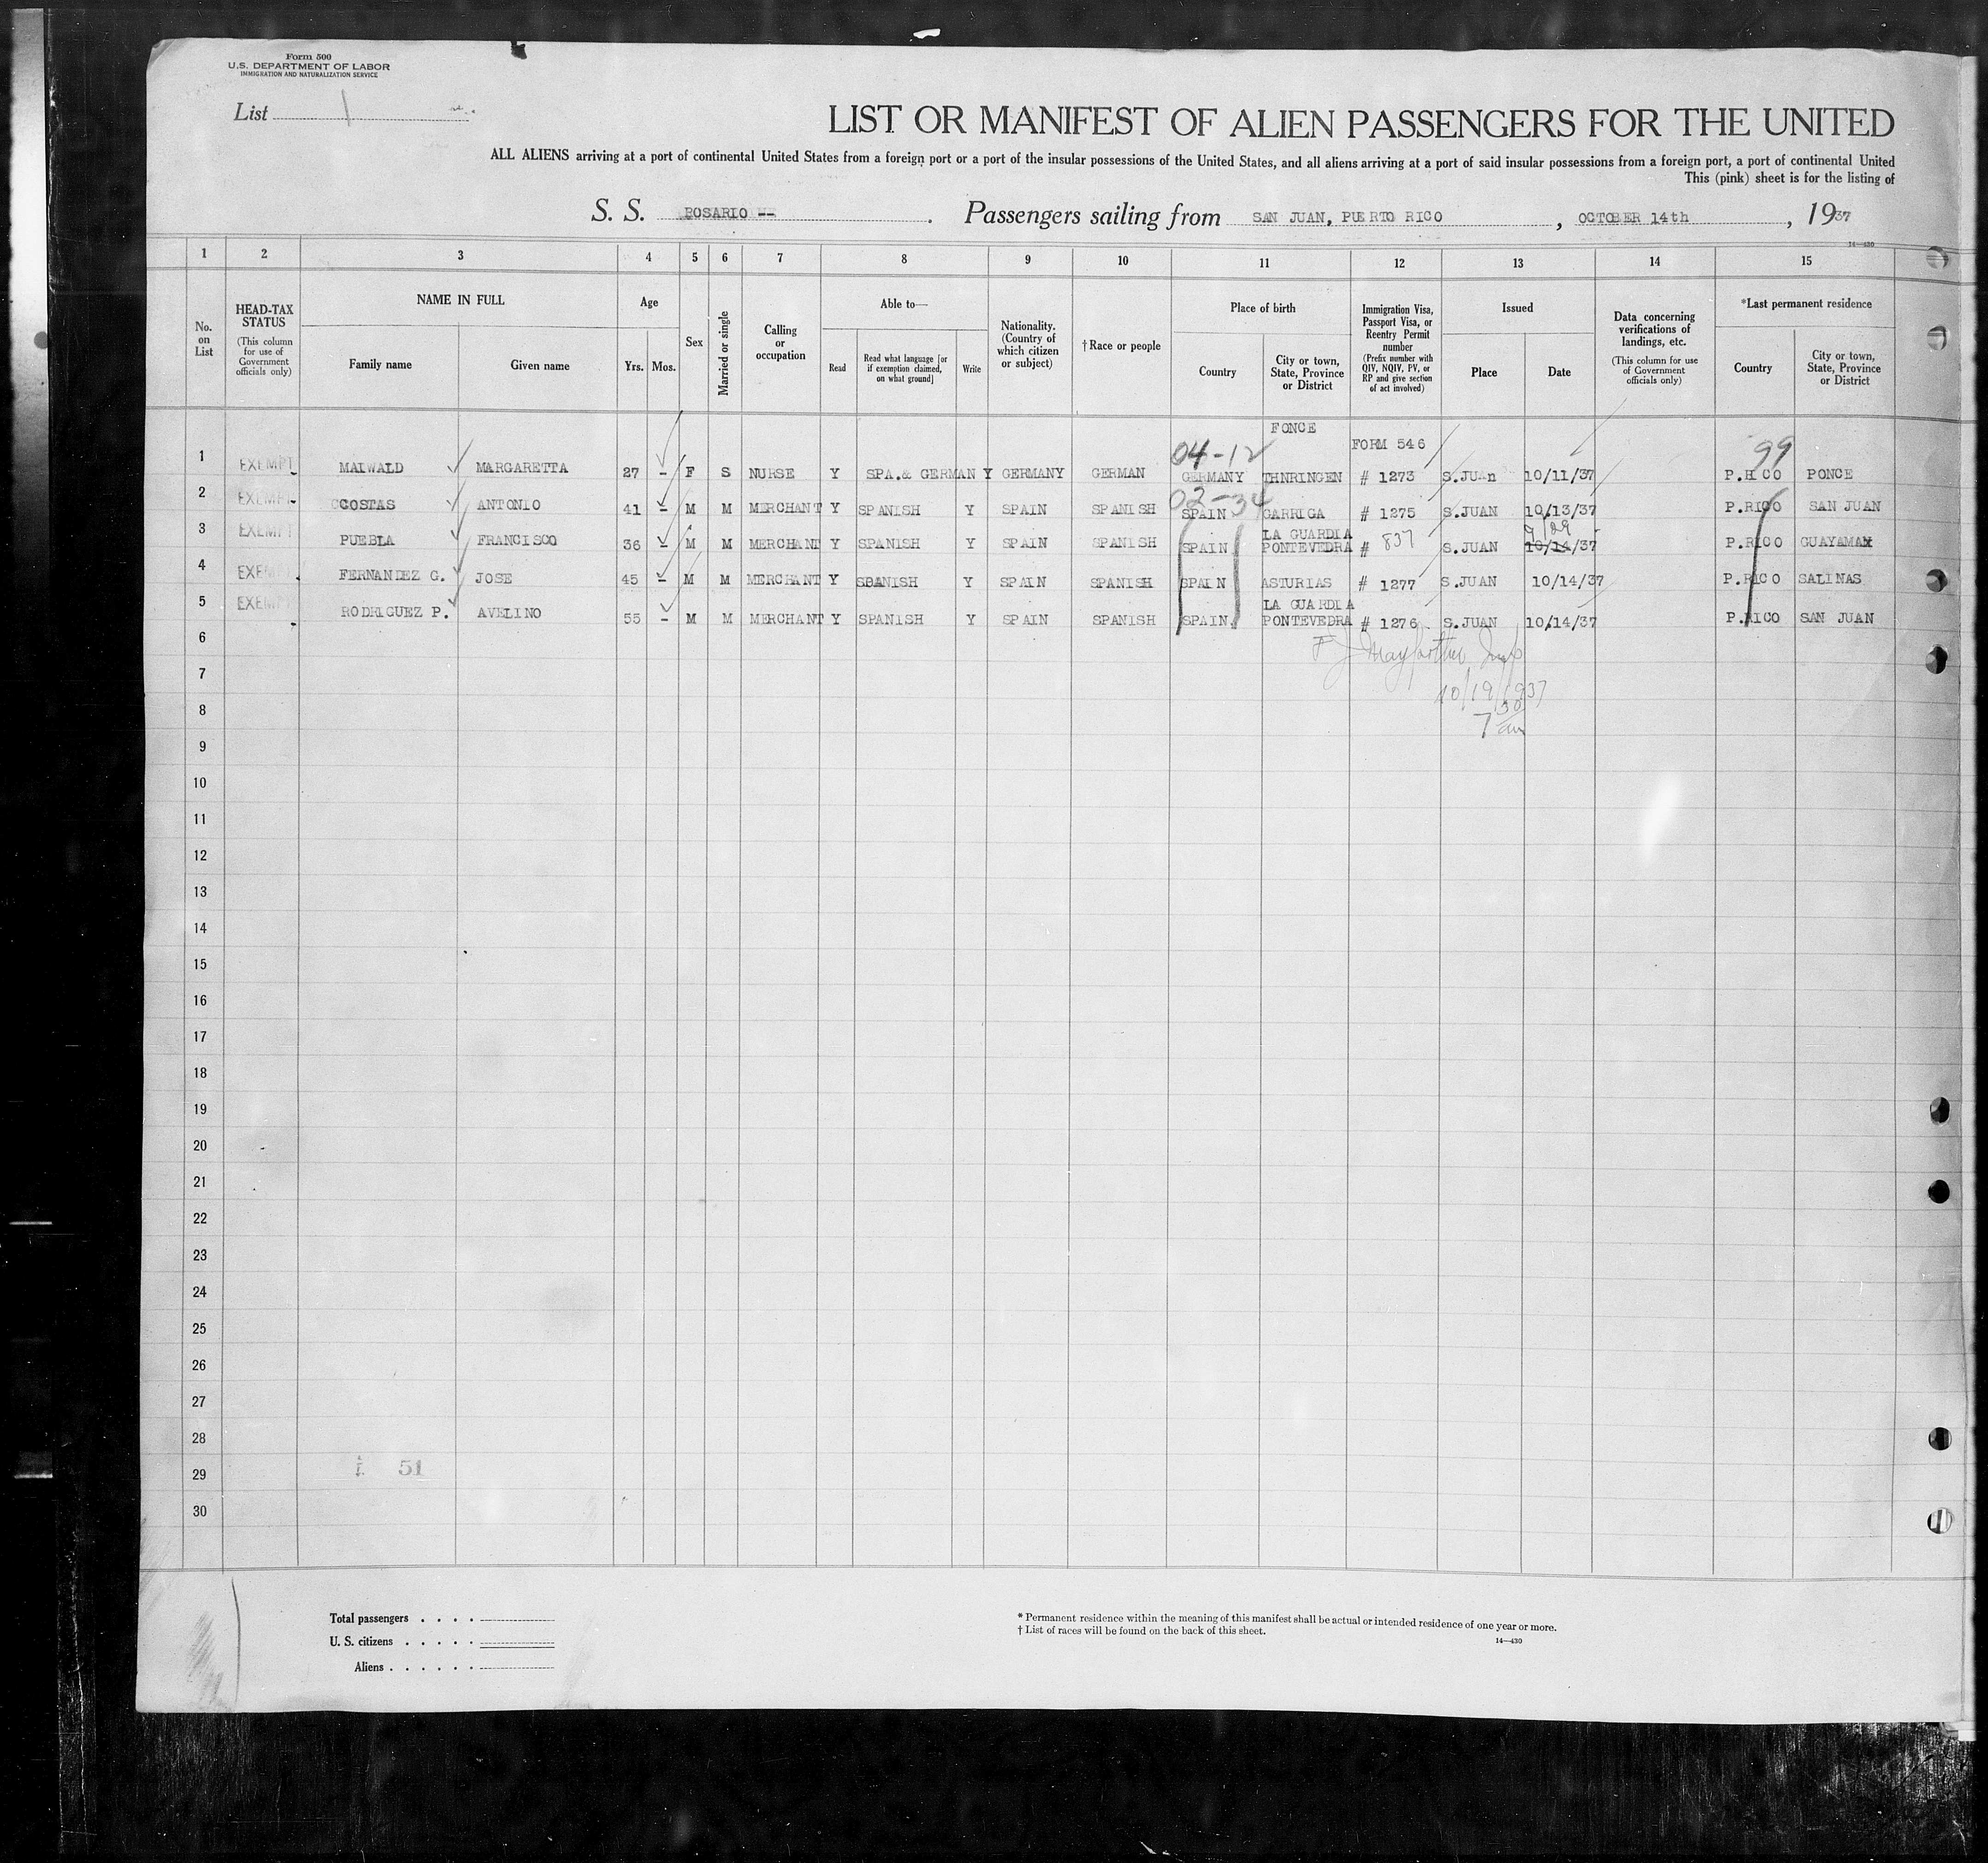 Form 500
U.S. DEPARTMENT OF LABOR
IMMIGRATION AND NATURALIZATION SERVICE
List 1
LIST OR MANIFEST OF ALIEN PASSENGERS FOR THE UNITED
ALL ALIENS arriving at a port of continental United States from a foreign port or a port of the insular possessions of the United States, and all aliens arriving at a port of said insular possessions from a foreign port, a port of continental United
This (pink) sheet is for the listing of
S. S. ROSARIO -- . Passengers sailing from SAN JUAN, PUERTO RICO , OCTOBER 14th , 1937
14—430
1 2 3 4 5 6 7 8 9 10 11 12 13 14 15
No. on List
HEAD-TAX STATUS
(This column for use of Government officials only)
NAME IN FULL
Family name Given name
Age
Yrs. Mos.
Sex
Married or single
Calling or occupation
Able to—
Read
Read what language [or if exemption claimed, on what ground]
Write
Nationality. (Country of which citizen or subject)
†Race or people
Place of birth
Country
City or town, State, Province or District
Immigration Visa, Passport Visa, or Reentry Permit number
(Prefix number with QIV, NQIV, PV, or RP and give section of act involved)
Issued
Place Date
Data concerning verifications of landings, etc.
(This column for use of Government officials only)
*Last permanent residence
Country
City or town, State, Province or District
FONCE
04-12 FORM 546 99
1 EXEMPT MAIWALD MARGARETTA 27 - F S NURSE Y SPA.& GERMAN Y GERMANY GERMAN GERMANY THNRINGEN # 1273 S.JUAn 10/11/37 P.RICO PONCE
02-34
2 EXEMPT COSTAS ANTONIO 41 - M M MERCHANT Y SPANISH Y SPAIN SPANISH SPAIN CARRIGA # 1275 S.JUAN 10/13/37 P.RICO SAN JUAN
LA GUARDIA 9/29
3 EXEMPT PUEBLA FRANCISCO 36 - M M MERCHANT Y SPANISH Y SPAIN SPANISH SPAIN PONTEVEDRA # 837 S.JUAN 10/14/37 P.RICO GUAYAMAX
4 EXEMPT FERNANDEZ G. JOSE 45 - M M MERCHANT Y SPANISH Y SPAIN SPANISH SPAIN ASTURIAS # 1277 S.JUAN 10/14/37 P.RICO SALINAS
LA GUARDIA
5 EXEMPT RODRIGUEZ P. AVELINO 55 - M M MERCHANT Y SPANISH Y SPAIN SPANISH SPAIN PONTEVEDRA # 1276 S.JUAN 10/14/37 P.RICO SAN JUAN
6
7
10/19/1937
8
7 30 am
9
10
11
12
13
14
15
16
17
18
19
20
21
22
23
24
25
26
27
28
29 51
30
Total passengers . . . .
U. S. citizens . . . . .
Aliens . . . . . .
* Permanent residence within the meaning of this manifest shall be actual or intended residence of one year or more.
† List of races will be found on the back of this sheet.
14—430